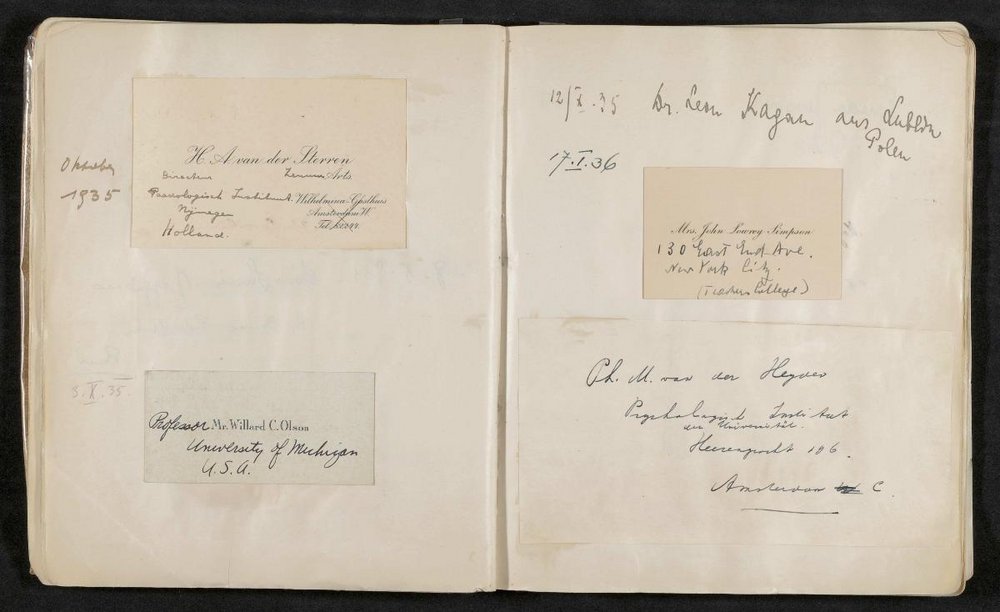 Oktober
1935
H. A. van der Sterren
Director Zenuw Arts.
Paedologisch Instituut Wilhelmina-Gasthuis
Nijmegen Amsterdam W.
Holland. Tel.
5.X.35.
Professor Mr. Willard C. Olson
University of Michigan
U.S.A.
12/X.35 Dr. Leon Kagan aus Lublin
Polen
17.I.36
Mrs. John Lowrey Simpson
130 East End Ave.
New York City.
(Teachers College)
Ph. M. van der Heyden
Psychologisch Institut
der Universität.
Heerengracht 196.
Amsterdam C.